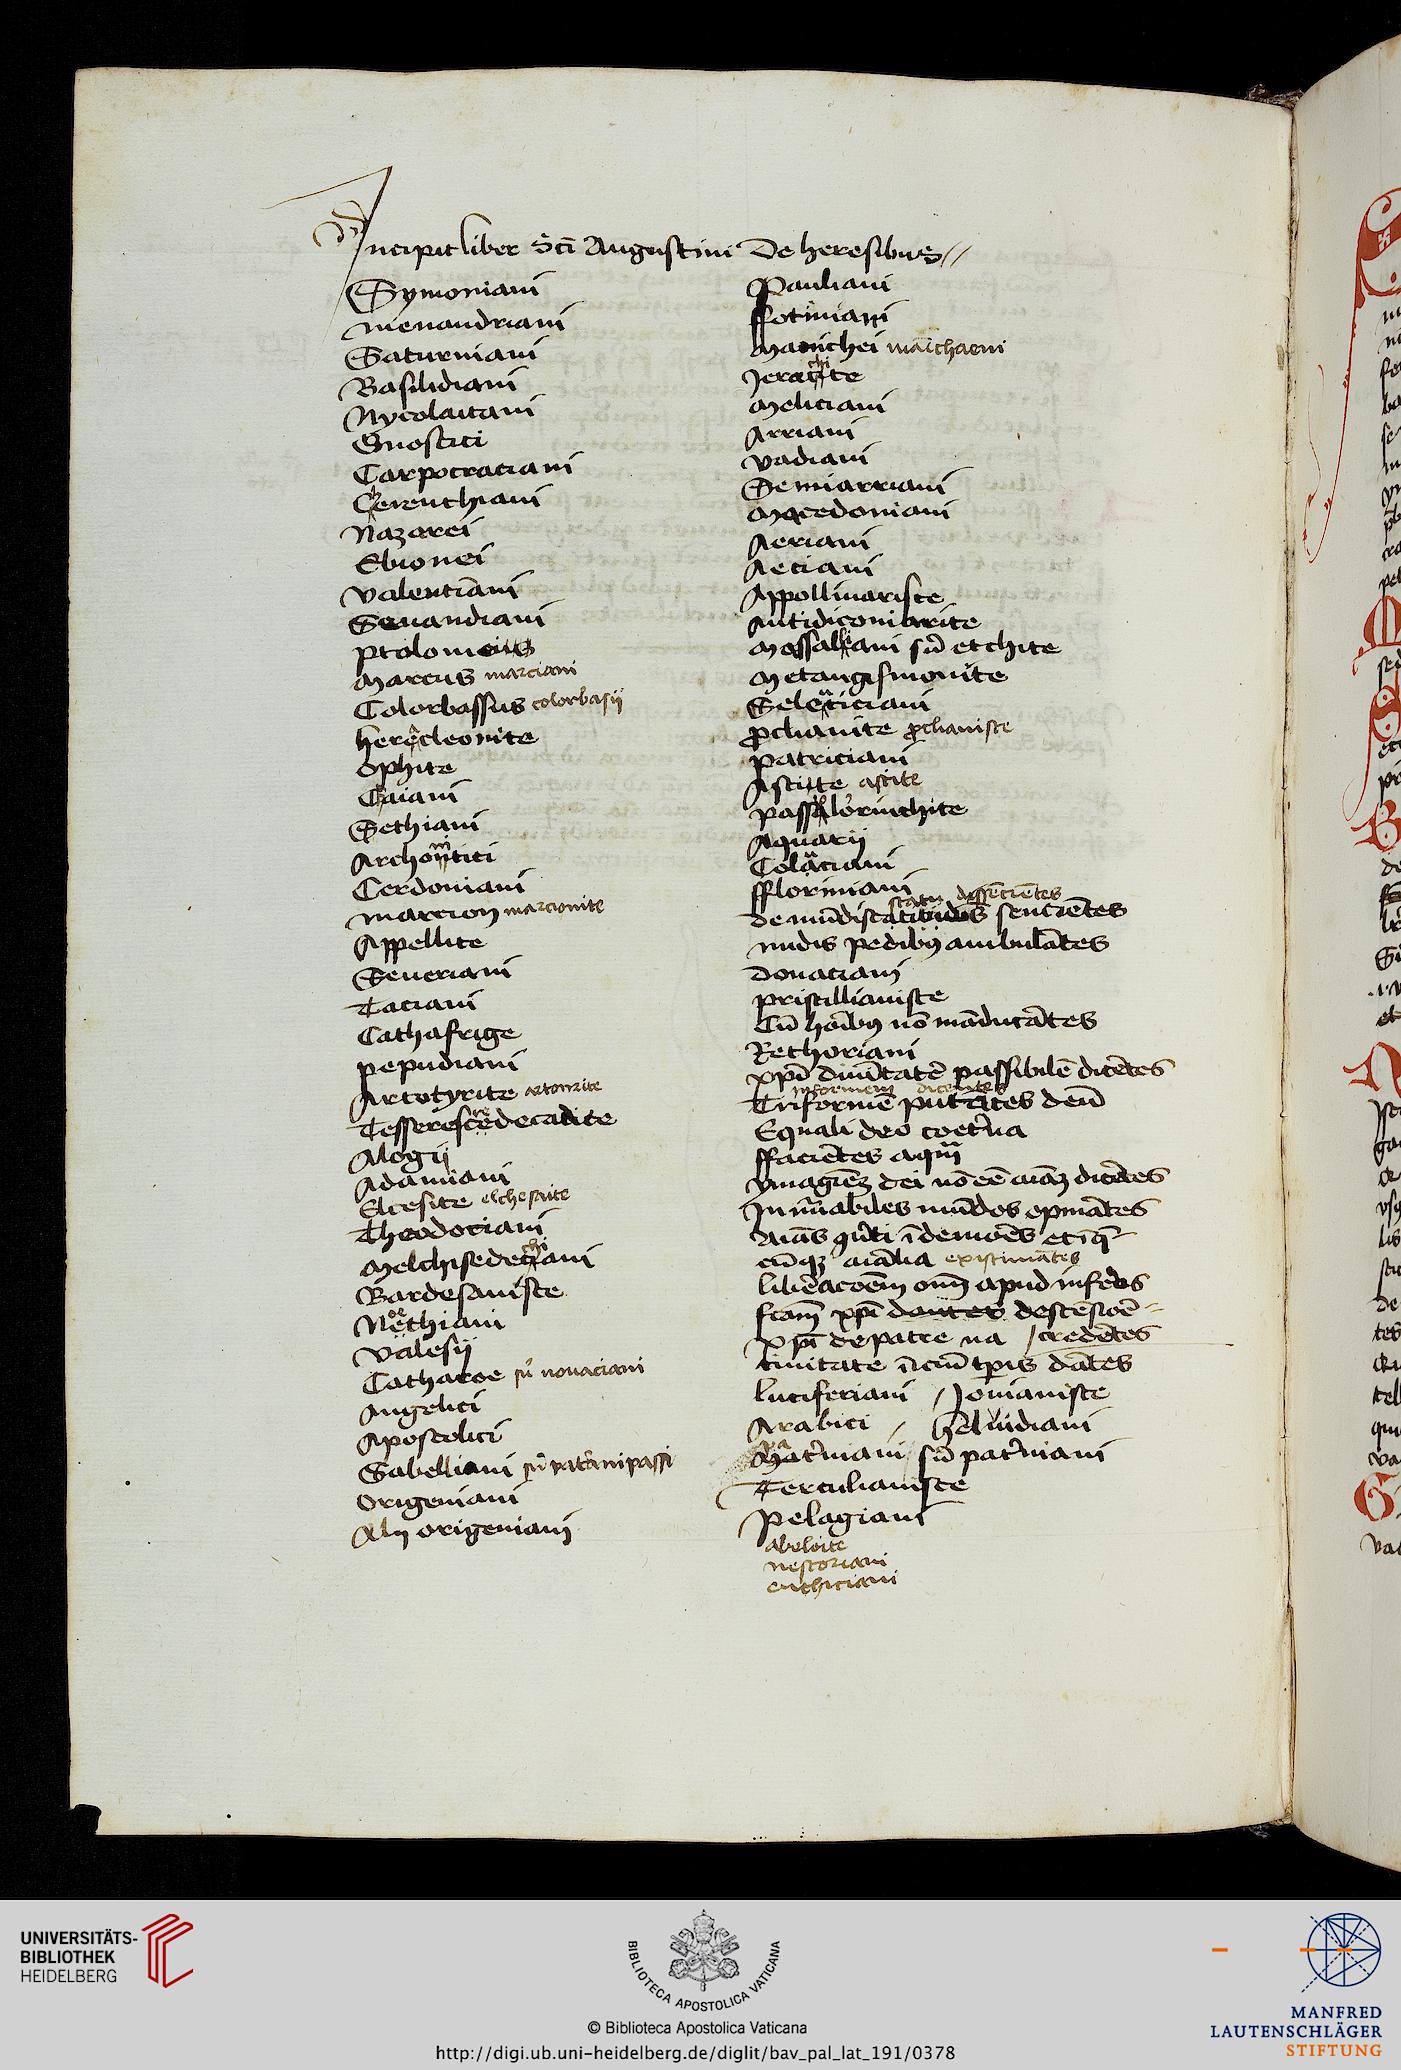 Incipit liber Sc̄i Augustini De heresibus //
Symoniani
menandriani
Saturniani
Basilidiani
Nycolaitani
Gnostici
Carpocraciani
Cerenthiani
Nazarei
Ebionei
valentiniani
Secundiani
Ptolomeus
Marcus marciani
Colorbassus colorbasii
heracleonite
Ophite
Caiani
Sethiani
Archontici
Cerdoniani
marcion marcionite
Appellite
Seueriani
Taciani
Cathafrige
pepudiani
Artotyrite
Tesserescedecadite
Alogij
Adamiani
Elcesite elchesaite
Theodociani
Melchisedechiani
Bardesaniste
Noethiani
Valesij
Catharoe nouaciani
Angelici
Apostolici
Sabelliani patripassi
Origeniani
Alij origeniani
Pauliani
ffotiniani
Manichei
Jerachite
Meliciani
Arriani
vadiani
Semiarriani
Macedoniani
Aeriani
Aeciani
Appollinariste
Antidicomarite
Massaliani etchite
Metangismonite
Seleuciani
pclianite pclianiste
patriciani
Ascitte ascite
passalorinchite
Aquarij
Coluciani
fflorimiani
de mūdi statu dissēciētes
nudis pedibꝫ ambulātes
Donaciani
priscillianiste
Cū hoībꝫ nō māducātes
Rethoriani
xp̄i diuītatē passibilē dicētes
Triformē putātes deū
Equali deo coet'na
ffaciētes aquā
ymagīeꝫ dei nō eē aīaꝫ dicētes
Innūabiles mūdos opinātes
aīas ꝯu'ti ī demoēs et ī q̄
cūqꝫ aīalia existimātes
libēacōem oīm apud inferos
fcām xp̄i descēsiōe
xp̄m de patre na / credētes
tiuitate īiciū tp̄is dātes
luciferiani / Jouinianiste
Arabici / heluidiani
pat'niani
Terculianiste
Pelagiani
abeloite
nestoriani
euthiciani
UNIVERSITÄTS-
BIBLIOTHEK
HEIDELBERG
BIBLIOTECA APOSTOLICA VATICANA
© Biblioteca Apostolica Vaticana
http://digi.ub.uni-heidelberg.de/diglit/bav_pal_lat_191/0378
MANFRED
LAUTENSCHLÄGER
STIFTUNG